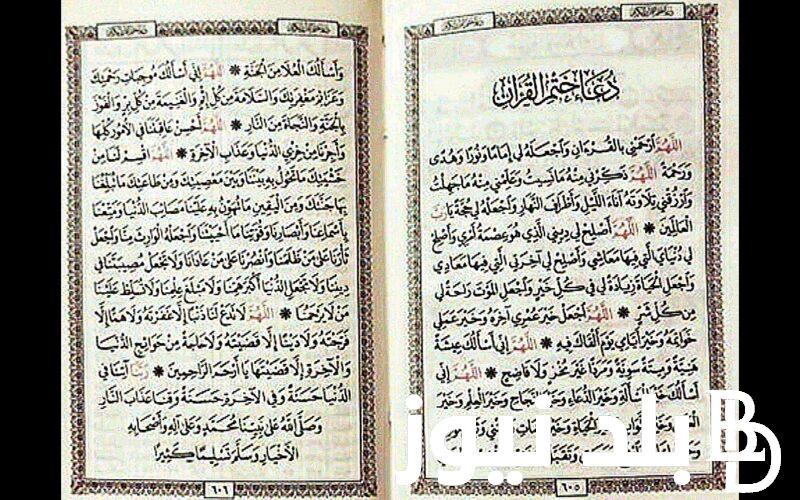 دُعَاءُ خَتْمِ القُرْآنِ
اللَّهُمَّ ارْحَمْنِي بِالقُرْءَانِ وَاجْعَلْهُ لِي إِمَامًا وَنُورًا وَهُدًى
وَرَحْمَةً اللَّهُمَّ ذَكِّرْنِي مِنْهُ مَا نَسِيتُ وَعَلِّمْنِي مِنْهُ مَا جَهِلْتُ
وَارْزُقْنِي تِلَاوَتَهُ آنَاءَ اللَّيْلِ وَأَطْرَافَ النَّهَارِ وَاجْعَلْهُ لِي حُجَّةً يَا رَبَّ
العَالَمِينَ * اللَّهُمَّ أَصْلِحْ لِي دِينِي الَّذِي هُوَ عِصْمَةُ أَمْرِي وَأَصْلِحْ
لِي دُنْيَايَ الَّتِي فِيهَا مَعَاشِي وَأَصْلِحْ لِي آخِرَتِي الَّتِي فِيهَا مَعَادِي
وَاجْعَلِ الحَيَاةَ زِيَادَةً لِي فِي كُلِّ خَيْرٍ وَاجْعَلِ المَوْتَ رَاحَةً لِي
مِنْ كُلِّ شَرٍّ * اللَّهُمَّ اجْعَلْ خَيْرَ عُمْرِي آخِرَهُ وَخَيْرَ عَمَلِي
خَوَاتِمَهُ وَخَيْرَ أَيَّامِي يَوْمَ أَلْقَاكَ فِيهِ * اللَّهُمَّ إِنِّي أَسْأَلُكَ عِيشَةً
هَنِيَّةً وَمِيتَةً سَوِيَّةً وَمَرَدًّا غَيْرَ مُخْزٍ وَلَا فَاضِحٍ * اللَّهُمَّ إِنِّي
أَسْأَلُكَ خَيْرَ المَسْأَلَةِ وَخَيْرَ الدُّعَاءِ وَخَيْرَ النَّجَاحِ وَخَيْرَ العِلْمِ وَخَيْرَ
وَخَيْرَ الحَيَاةِ وَخَيْرَ
٦٠٥
وَأَسْأَلُكَ العُلَا مِنَ الجَنَّةِ * اللَّهُمَّ إِنِّي أَسْأَلُكَ مُوجِبَاتِ رَحْمَتِكَ
وَعَزَائِمَ مَغْفِرَتِكَ وَالسَّلَامَةَ مِنْ كُلِّ إِثْمٍ وَالغَنِيمَةَ مِنْ كُلِّ بِرٍّ وَالفَوْزَ
بِالجَنَّةِ وَالنَّجَاةَ مِنَ النَّارِ * اللَّهُمَّ أَحْسِنْ عَاقِبَتَنَا فِي الأُمُورِ كُلِّهَا
وَأَجِرْنَا مِنْ خِزْيِ الدُّنْيَا وَعَذَابِ الآخِرَةِ * اللَّهُمَّ اقْسِمْ لَنَا مِنْ
خَشْيَتِكَ مَا تَحُولُ بِهِ بَيْنَنَا وَبَيْنَ مَعْصِيَتِكَ وَمِنْ طَاعَتِكَ مَا تُبَلِّغُنَا
بِهَا جَنَّتَكَ وَمِنَ اليَقِينِ مَا تُهَوِّنُ بِهِ عَلَيْنَا مَصَائِبَ الدُّنْيَا وَمَتِّعْنَا
بِأَسْمَاعِنَا وَأَبْصَارِنَا وَقُوَّتِنَا مَا أَحْيَيْتَنَا وَاجْعَلْهُ الوَارِثَ مِنَّا وَاجْعَلْ
ثَأْرَنَا عَلَى مَنْ ظَلَمَنَا وَانْصُرْنَا عَلَى مَنْ عَادَانَا وَلَا تَجْعَلْ مُصِيبَتَنَا فِي
دِينِنَا وَلَا تَجْعَلِ الدُّنْيَا أَكْبَرَ هَمِّنَا وَلَا مَبْلَغَ عِلْمِنَا وَلَا تُسَلِّطْ عَلَيْنَا
مَنْ لَا يَرْحَمُنَا * اللَّهُمَّ لَا تَدَعْ لَنَا ذَنْبًا إِلَّا غَفَرْتَهُ وَلَا هَمًّا إِلَّا
فَرَّجْتَهُ وَلَا دَيْنًا إِلَّا قَضَيْتَهُ وَلَا حَاجَةً مِنْ حَوَائِجِ الدُّنْيَا
وَالآخِرَةِ إِلَّا قَضَيْتَهَا يَا أَرْحَمَ الرَّاحِمِينَ * رَبَّنَا آتِنَا فِي
الدُّنْيَا حَسَنَةً وَفِي الآخِرَةِ حَسَنَةً وَقِنَا عَذَابَ النَّارِ
وَصَلَّى اللهُ عَلَى نَبِيِّنَا مُحَمَّدٍ وَعَلَى آلِهِ وَأَصْحَابِهِ
الأَخْيَارِ وَسَلَّمَ تَسْلِيمًا كَثِيرًا
٦٠٦
بلد نيوز